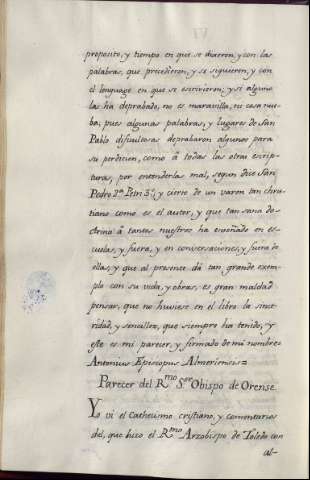 proposito, y tiempo en que se dixeron, y con las
palabras, que precedieron, y se siguieron, y con
el lenguage en que se escrivieron; y si alguno
las ha deprabado, no es maravilla, ni cosa nue-
ba; pues algunas palabras, y lugares de San
Pablo dificultosas deprabaron algunos para
su perdicion, como â todas las otras escrip-
turas, por entenderlas mal, segun dice San
Pedro 2ª Petri 3º; y cierto de un varon tan chris-
tiano como es el autor, y que tan sana do-
ctrina â tantos nuestros ha enseñado en es-
cuelas, y fuera, y en conversaciones, y fuera de
ellas, y que al presente dá tan grande exem-
plo con su vida, y obras, es gran maldad
pensar, que no huviese en el libro la since-
ridad, y sencillez, que siempre ha tenido, y
este es mi parecer, y firmado de mi nombre=
Antonius Episcopus Almeriensis=
Parecer del Rmo Sor Obispo de Orense.
Yo vi el Cathecismo cristiano, y comentarios
del, que hizo el Rmo Arzobispo de Toledo con
al-